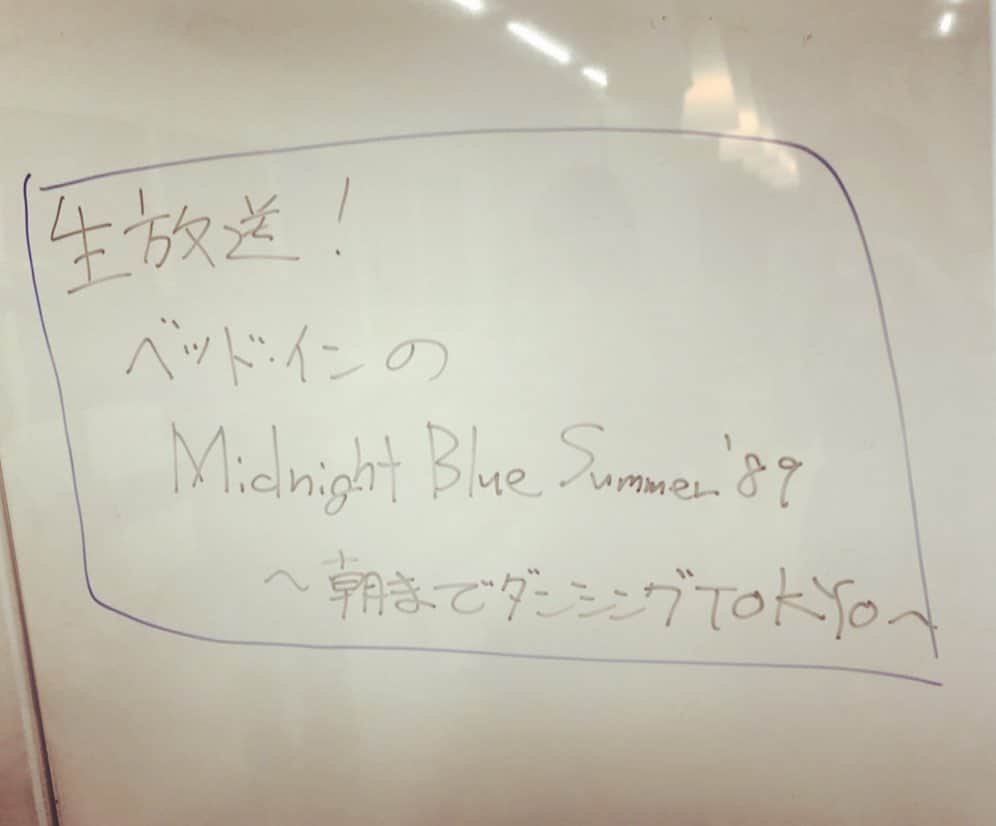 生放送！
ベッド・インの
Midnight Blue Summer '89
～朝までダンシングTOKYO～